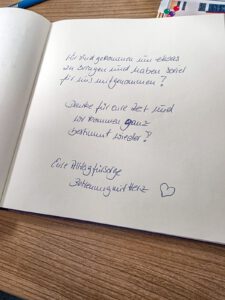 Wir sind gekommen um etwas
zu bringen und haben soviel
für uns mitgenommen!
Danke für eure Zeit und
wir kommen ganz
bestimmt wieder!
Eure Alltagfürsorge
Betreuung mit Herz